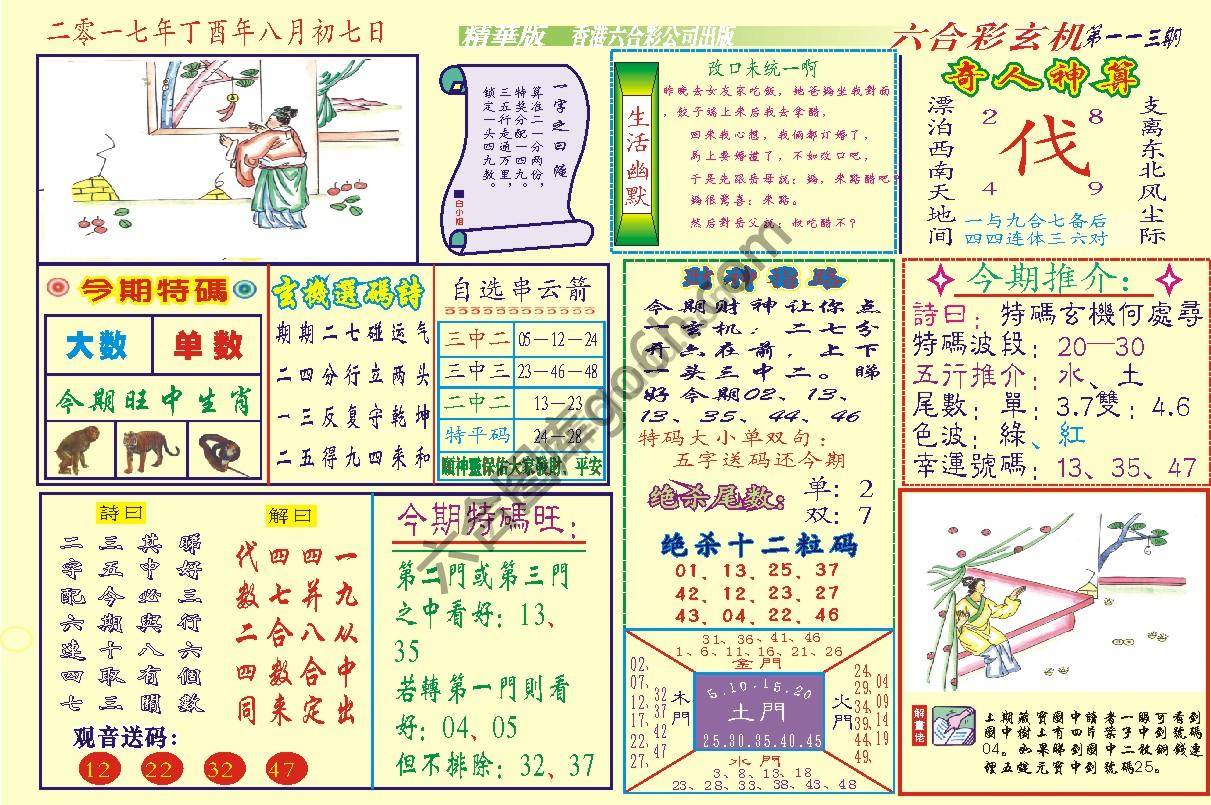 二零一七年丁酉年八月初七日
精華版 香港六合彩公司出版
六合彩玄机 第一一三期
一字之曰 隨
算准二一分两份，
特奖分配一四九，
三五行走通万里，
锁定一头四九数。
白小姐
生活幽默
改口未统一啊
昨晚去女友家吃飯，她爸媽坐我對面
，餃子端上來后我去拿醋，
回来我心想，我俩都订婚了，
馬上要婚禮了，不如改口吧，
于是先跟岳母說：媽，來點醋吧？
媽很驚喜：來點。
然后對岳父說：叔吃醋不？
奇人神算
漂泊西南天地间
2 8
伐
4 9
支离东北风尘际
一与九合七备后
四四连体三六对
今期特碼
大数 单数
今期旺中生肖
玄機選碼詩
期期二七碰运气
二四分行立两头
一三反复守乾坤
二五得九四来和
自选串云箭
三中二 05—12—24
三中三 23—46—48
二中二 13—23
特平码 24—28
願神靈保佑大家發財、平安
财神龍路
今期财神让你点
一玄机，二七分
开六在前，上下
一头三中二。睇
好今期02、13、
13、35、44、46
特码大小单双句：
五字送码还今期
绝杀尾数： 单：2
双：7
绝杀十二粒码
01、13、25、37
42、12、23、27
43、04、22、46
今期推介：
詩曰：特碼玄機何處尋
特碼波段：20—30
五行推介：水、土
尾數：單：3.7雙：4.6
色波：綠、紅
幸運號碼：13、35、47
詩曰
睇好三行六個數
其中必與八有關
三五今期十取三
二字配六連四七
解曰
一九从中出
四并八合定
四七合数来
代数二四同
观音送码：
12 22 32 47
今期特碼旺：
第二門或第三門
之中看好：13、
35
若轉第一門則看
好：04、05
但不排除：32、37
31、36、41、46
1、6、11、16、21、26
金門
02、
07、
12、
17、
22、
27、
32
37
42
47
木門
5.10.15.20
土門
25.30.35.40.45
火門
24、
29、
34、
39、
44、
49、
04
09
14
19
水門
3、8、13、18
23、28、33、38、43、48
解畫佬
上期藏寶圖中讀者一眼可看到
圖中樹上有四片葉子中到號碼
04。如果睇到圖中二枚銅錢連
裡五錠元寶中到號碼25。
六合图库gootm.com